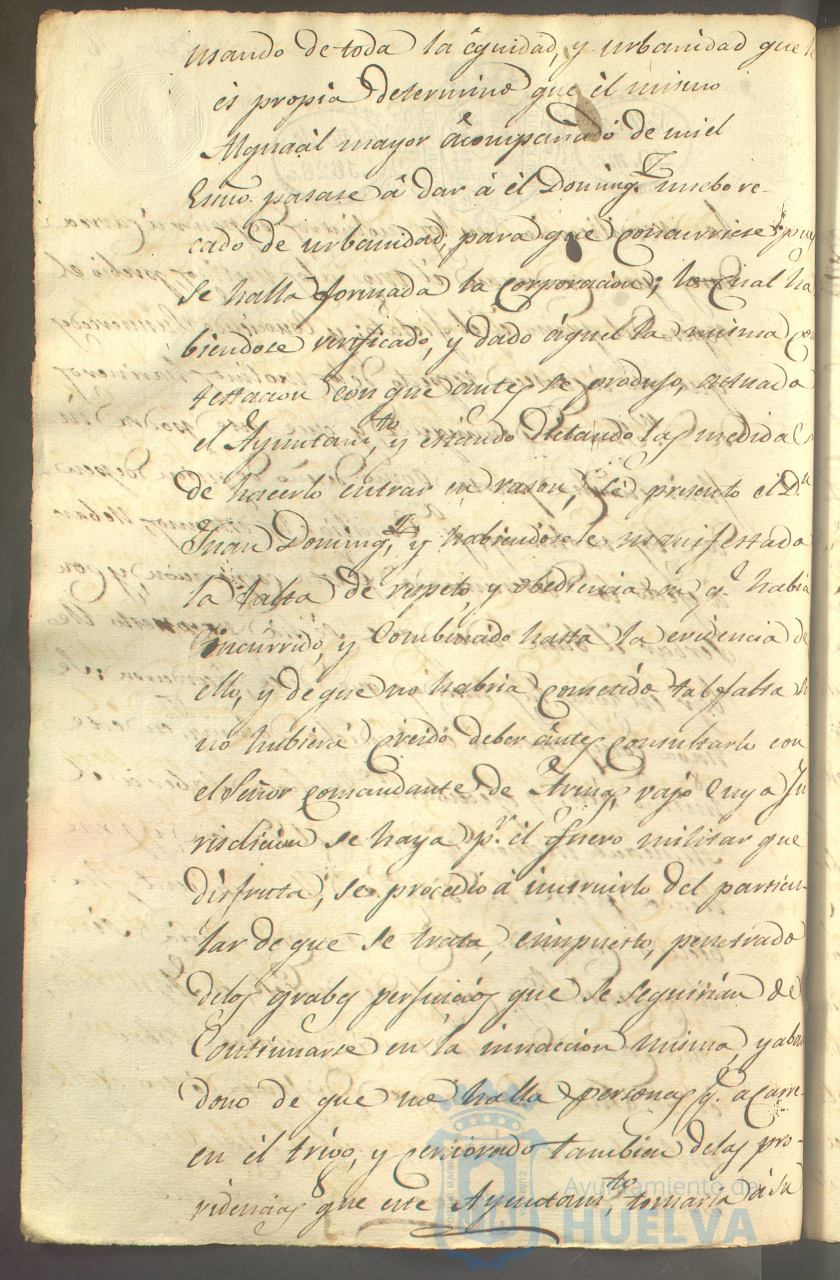 usando de toda la eguidad, y urbanidad que le
es propia determinó que él mismo
Alguacil mayor acompañado de mi el
Esno. pasase á dar á él Doming.z nuebo re-
cado de urbanidad, para que concurriese, pues
se halla formada la corporacion; lo cual ha
biendose verificado, y dado aquel la misma con
testacion con que antes se produjo, actuado
el Ayuntam.to, y estando dictando las medidas
de hacerlo entrar en rason, se presento el D.n
Juan Doming.z, y habiendosele manifestado
la falta de respeto, y obediencia en q.e habia
incurrido, y combinado hasta la evidencia de
ello, y de que no habria cometido tal falta si
no hubiera creido deber antes consultarlo con
el Señor comandante de Armas, vajo cuya Ju
risdicion se haya p.r el fuero militar que
disfruta, se procedio á instruirlo del particu-
lar de que se trata, e impuesto, penetrado
delos grabes perjuicios que se seguirian de
Continuarse en la innaccion misma, y aban
dono de que no halla personas q.e acarre-
en el trigo, y cerciorado tambien delas pro-
videncias que este Ayuntam.to tomaria á su
Ayuntamiento de
HUELVA